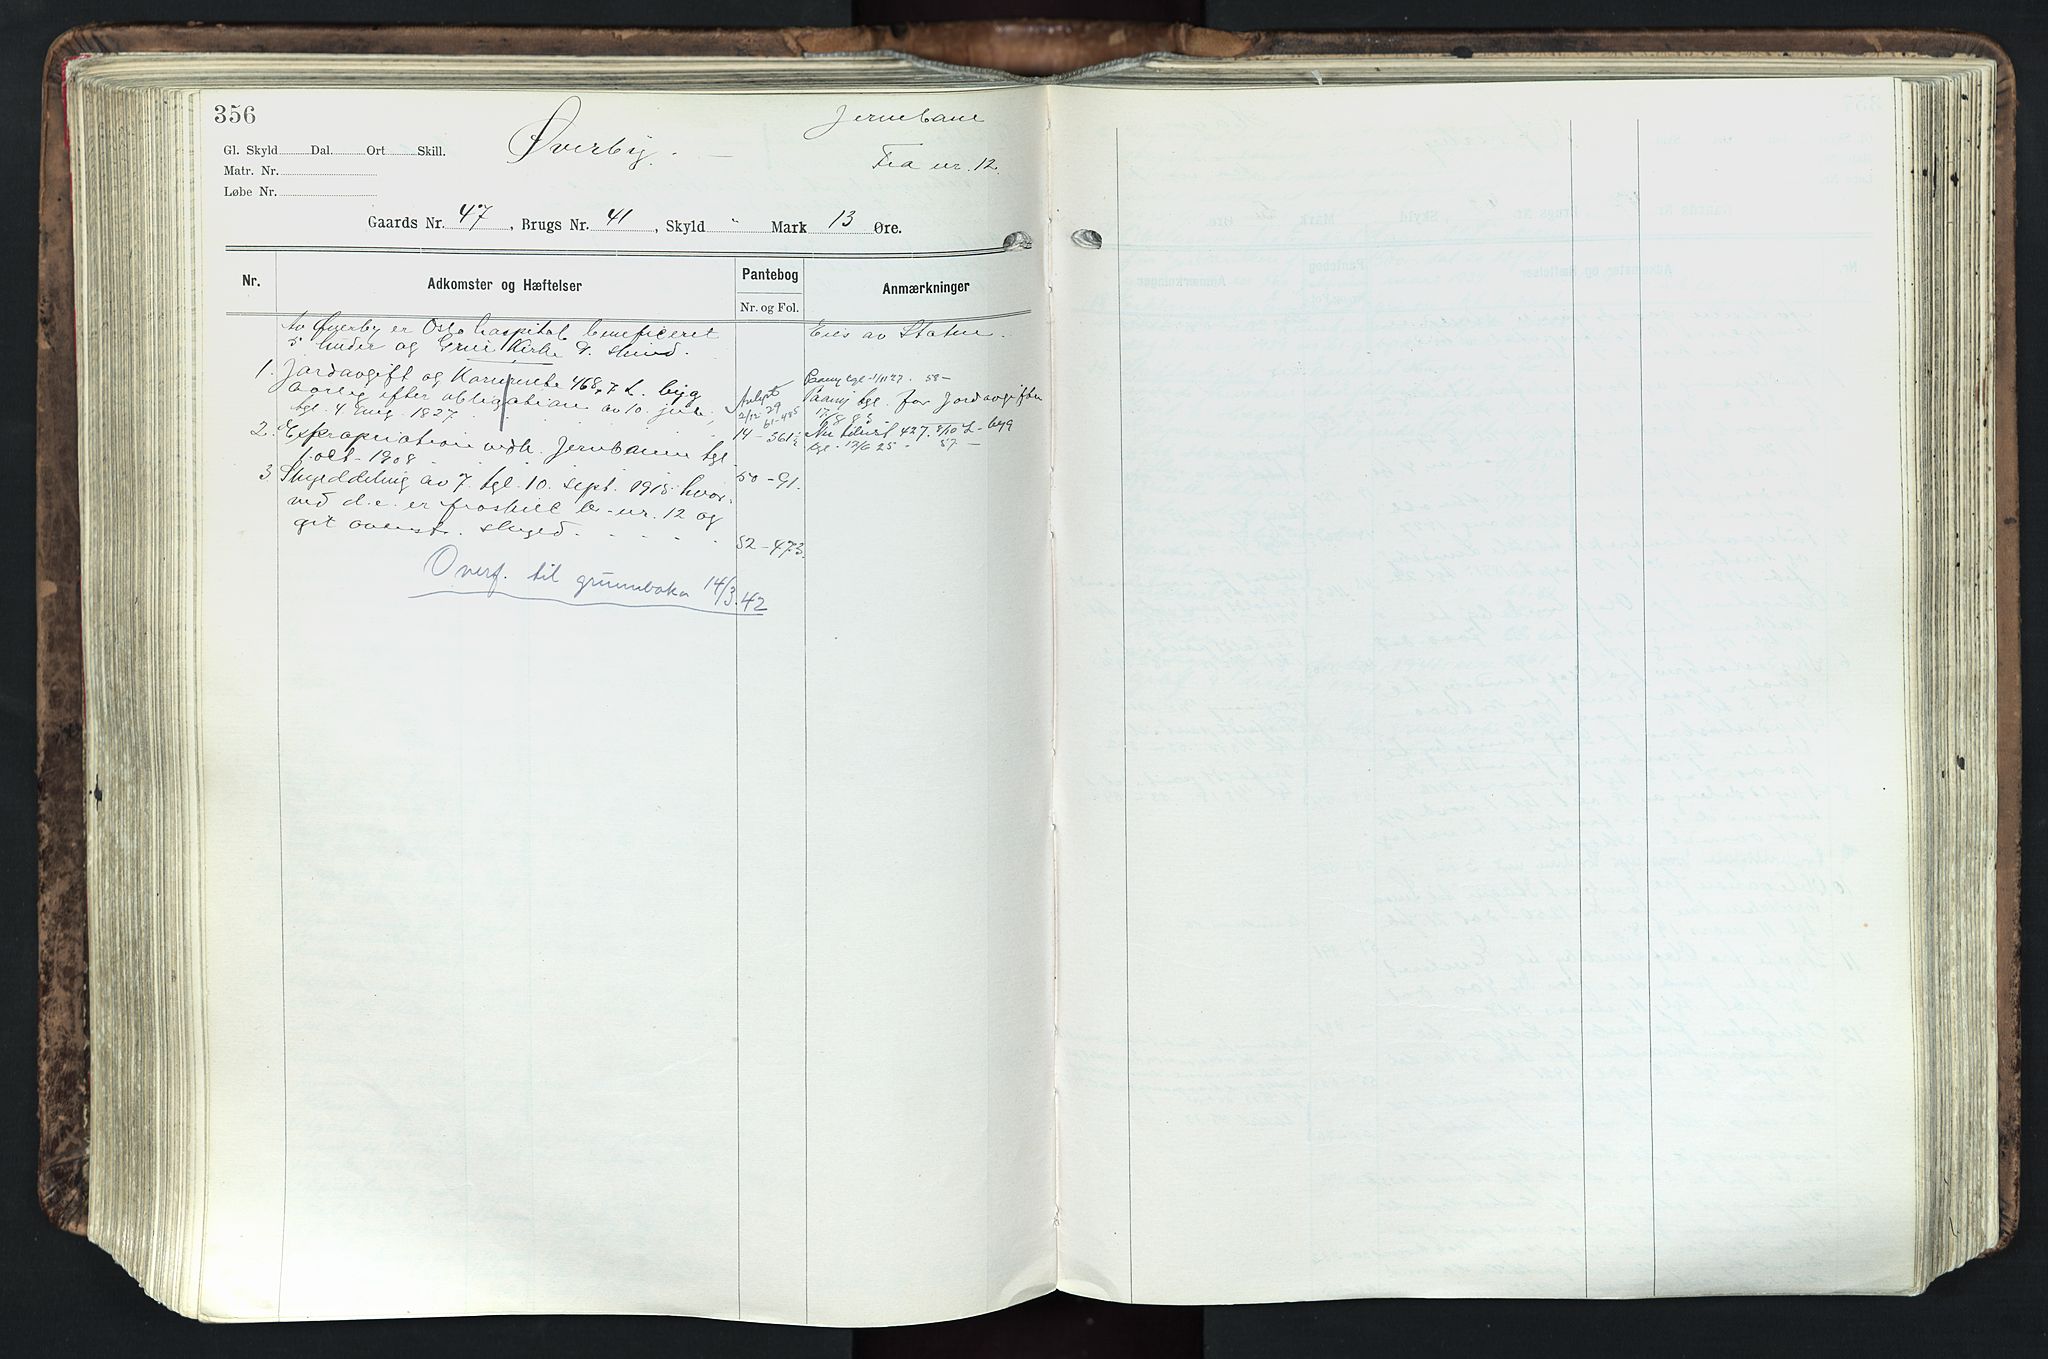 356
Jernebane
Øverby.
Fra nr. 12.
Gl. Skyld Dal. Ort Skill.
Matr. Nr.
Løbe Nr.
Gaards Nr. 47, Brugs Nr. 41, Skyld " Mark 13 Øre.
Nr.
Adkomster og Hæftelser
Pantebog
Nr. og Fol.
Anmærkninger
Av Øverby er Oslo hospital beneficeret
5 huder og Grue Kirke 9 skind.
Eies av Staten.
1. Jordavgift og Kornrente 468,7 L. byg
aarlig efter obligation av 10. juli,
tgl. 4 aug. 1827.
Avlyst
2/12 29
61-485
Paany tgl. 1/11 27. 58-
Paany tgl. for Jordavgiften
2. Expropriation vedk. Jernbanen tgl.
1. oct. 1908
14-561½
427. 8/10 L. byg
tgl. 13/6 25. 57-
3. Skylddeling av 7. tgl. 10. sept. 1915. hvor-
ved d.e. er fraskilt b.-nr. 12 og
git ovenst. skyld.
50-91.
52-473.
Overf. til grunnboka 14/3.42